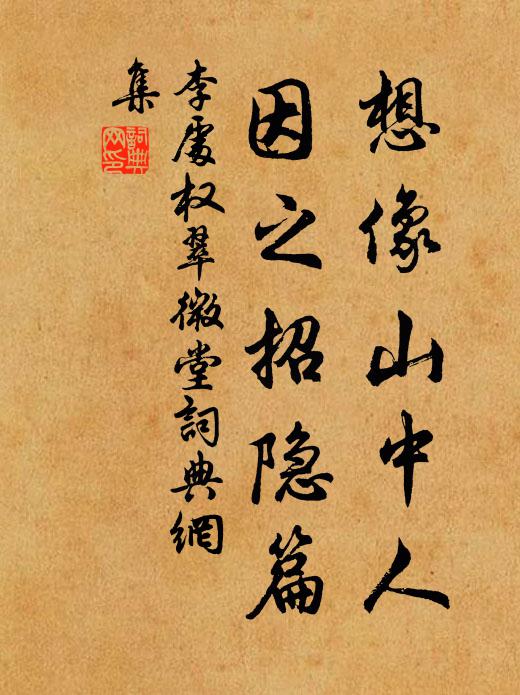 想像山中人
因之招隐篇
李處权翠微堂詞典網
集
詞典
网印